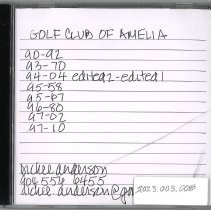 GOLF CLUB OF AMELIA
90-92
93-70
94-04 edited2-edited1
95-58
95-67
96-80
97-02
97-10
anderson
904 556 6455
anderson@
2023.003.008